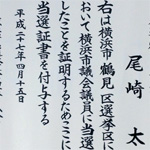 尾崎太
右は横浜市鶴見区選挙区に
おいて横浜市議会議員に当選
したことを証明するためここに
当選証書を付与する
平成二十七年四月十五日